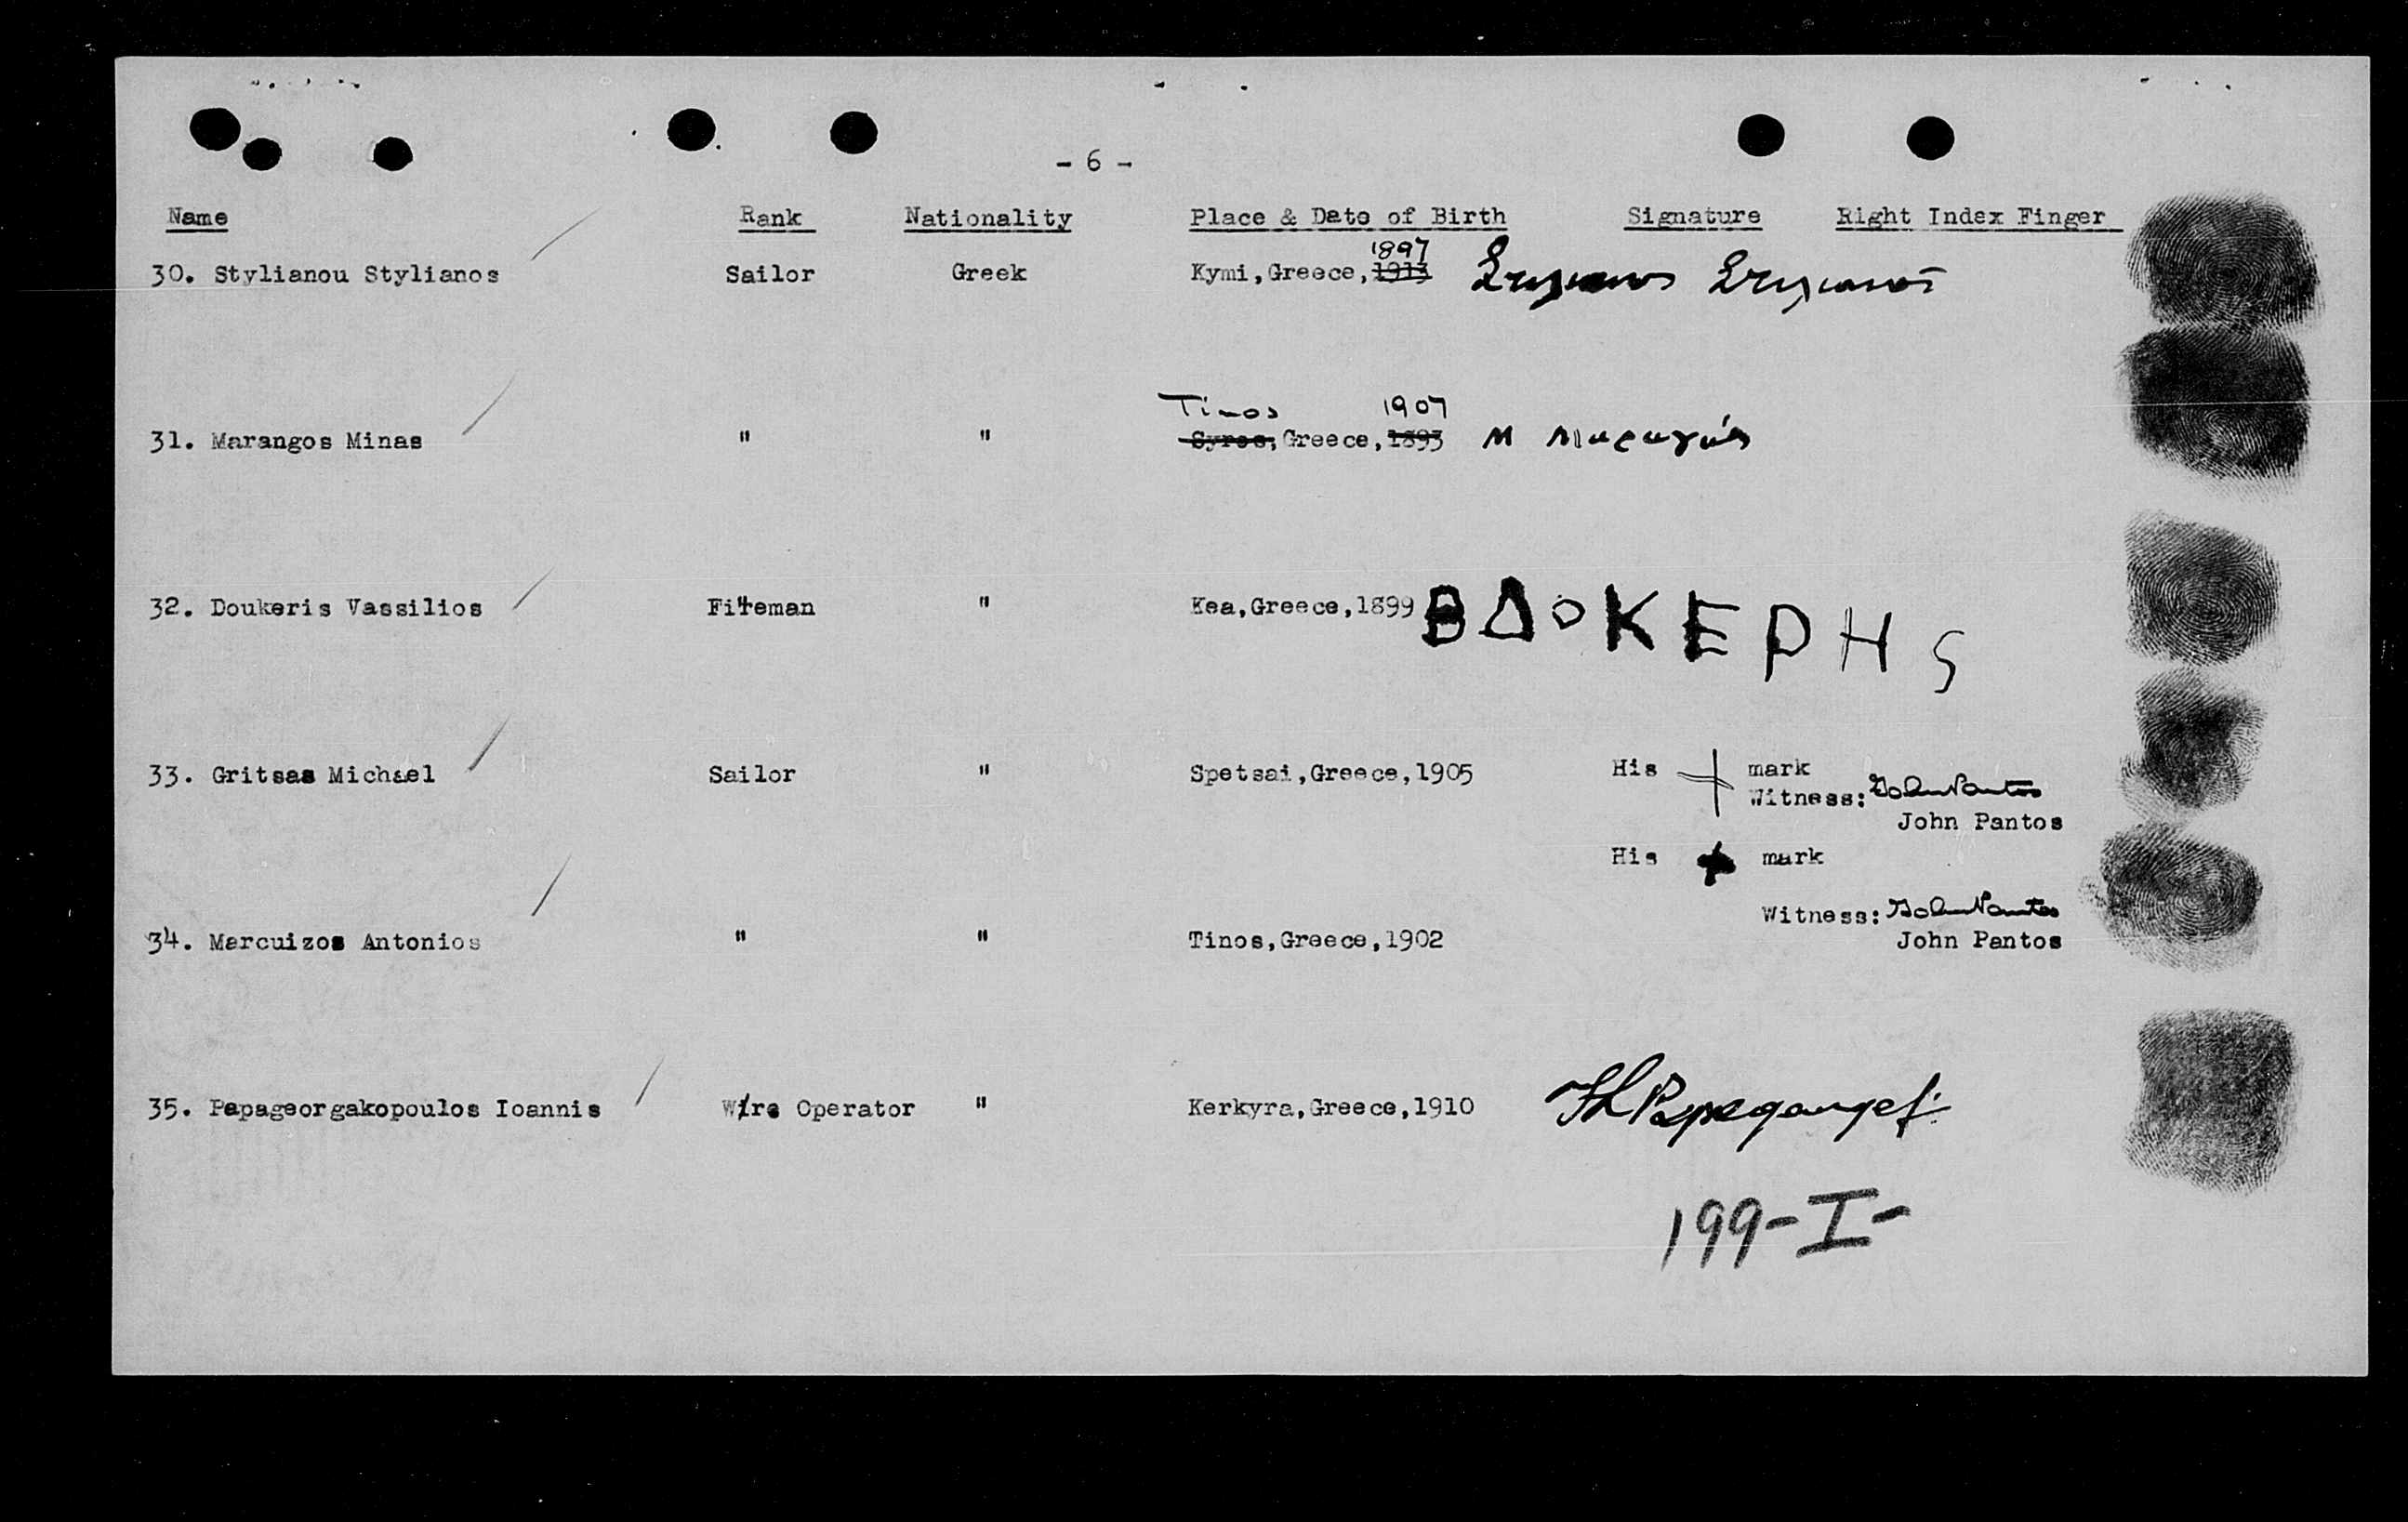 - 6 -
Name Rank Nationality Place & Date of Birth Signature Right Index Finger
1897
30. Stylianou Stylianos Sailor Greek Kymi, Greece, 1913
Tinos 1907
31. Marangos Minas " " Syros, Greece, 1893 Μ Μαραγκός
32. Doukeris Vassilios Fireman " Kea, Greece, 1899 ΒΔΟΚΕΡΗς
33. Gritsas Michael Sailor " Spetsai, Greece, 1905 His mark
Witness: John Pantos
John Pantos
His mark
Witness: John Pantos
34. Marcuizos Antonios " " Tinos, Greece, 1902 John Pantos
35. Papageorgakopoulos Ioannis Wire Operator " Kerkyra, Greece, 1910
199-I-